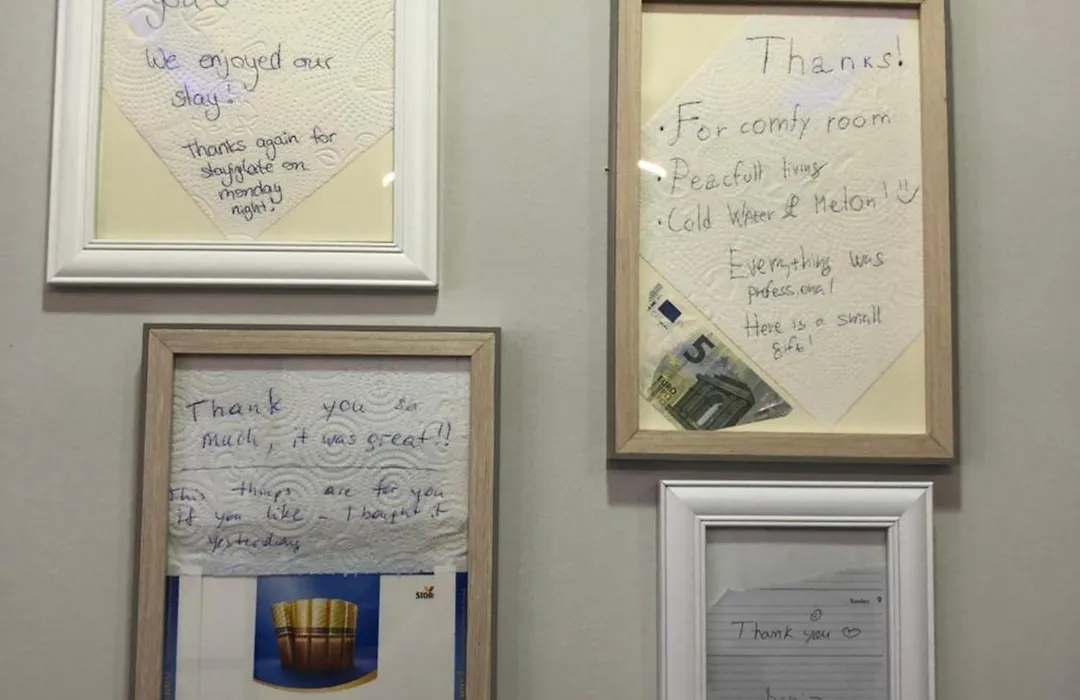 you
We enjoyed our
stay!
Thanks again for
stay late on
monday
night!
Thanks!
· For comfy room
· Peacfull living
· Cold Water & Melon!
Everything was
professional
Here is a small
gift!
5
EURO
Thank you so
much, it was great!!
This things are for you
if you like - I bought it
yesterday
SIOR
Sunday 9
Thank you